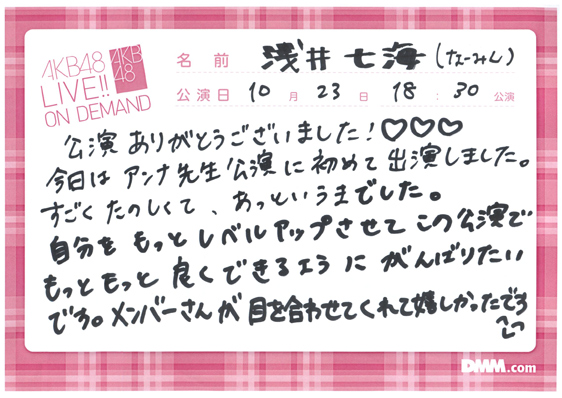 AKB48
LIVE!!
ON DEMAND
AKB
48
名前 浅井七海(なーみん)
公演日 10月23日 18:30公演
公演ありがとうございました!♡♡♡
今日はアンナ先生公演に初めて出演しました。
すごくたのしくて、あっというまでした。
自分をもっとレベルアップさせてこの公演で
もっともっと良くできるようにがんばりたい
です。メンバーさんが目を合わせてくれて嬉しかったです
DMM.com